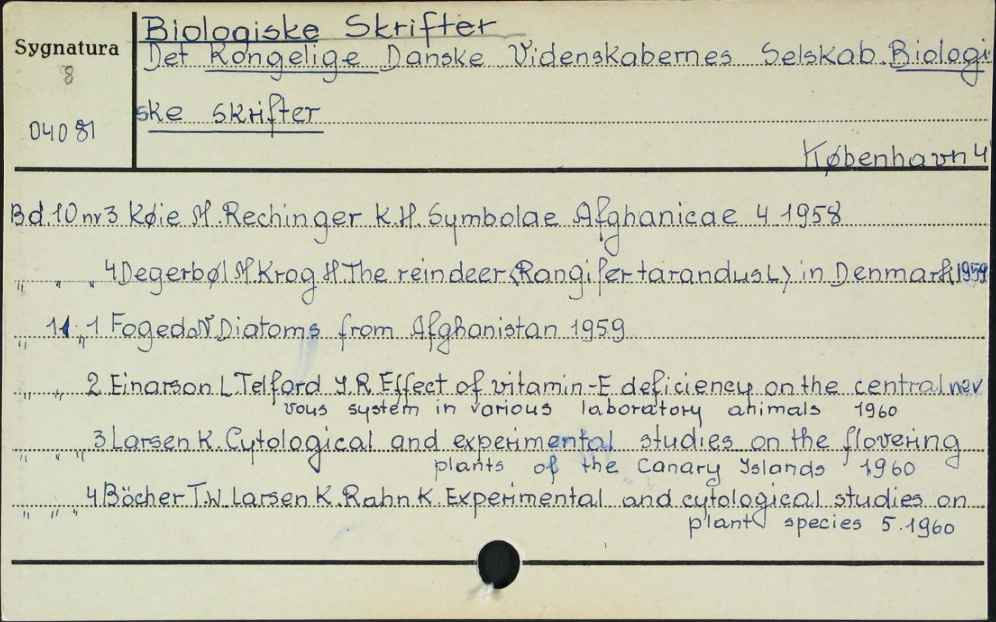 Biologiske Skrifter
Sygnatura
Det Kongelige Danske Videnskabernes Selskab. Biologi
8
ske skrifter
04081
København 4
Bd. 10 nr 3 Køie M. Rechinger K.H. Symbolae Afghanicae 4 1958
" " " 4 Degerbøl M Krog H. The reindeer (Rangifer tarandus L) in Denmark 1959
" 11 " 1 Foged N Diatoms from Afghanistan 1959
" " 2 Einarson L Telford I.R Effect of vitamin-E deficiency on the central ner
vous system in various laboratory animals 1960
" " " 3 Larsen K. Cytological and experimental studies on the flovering
plants of the Canary Islands 1960
" " " 4 Böcher T.W. Larsen K. Rahn K. Experimental and cytological studies on
plant species 5. 1960